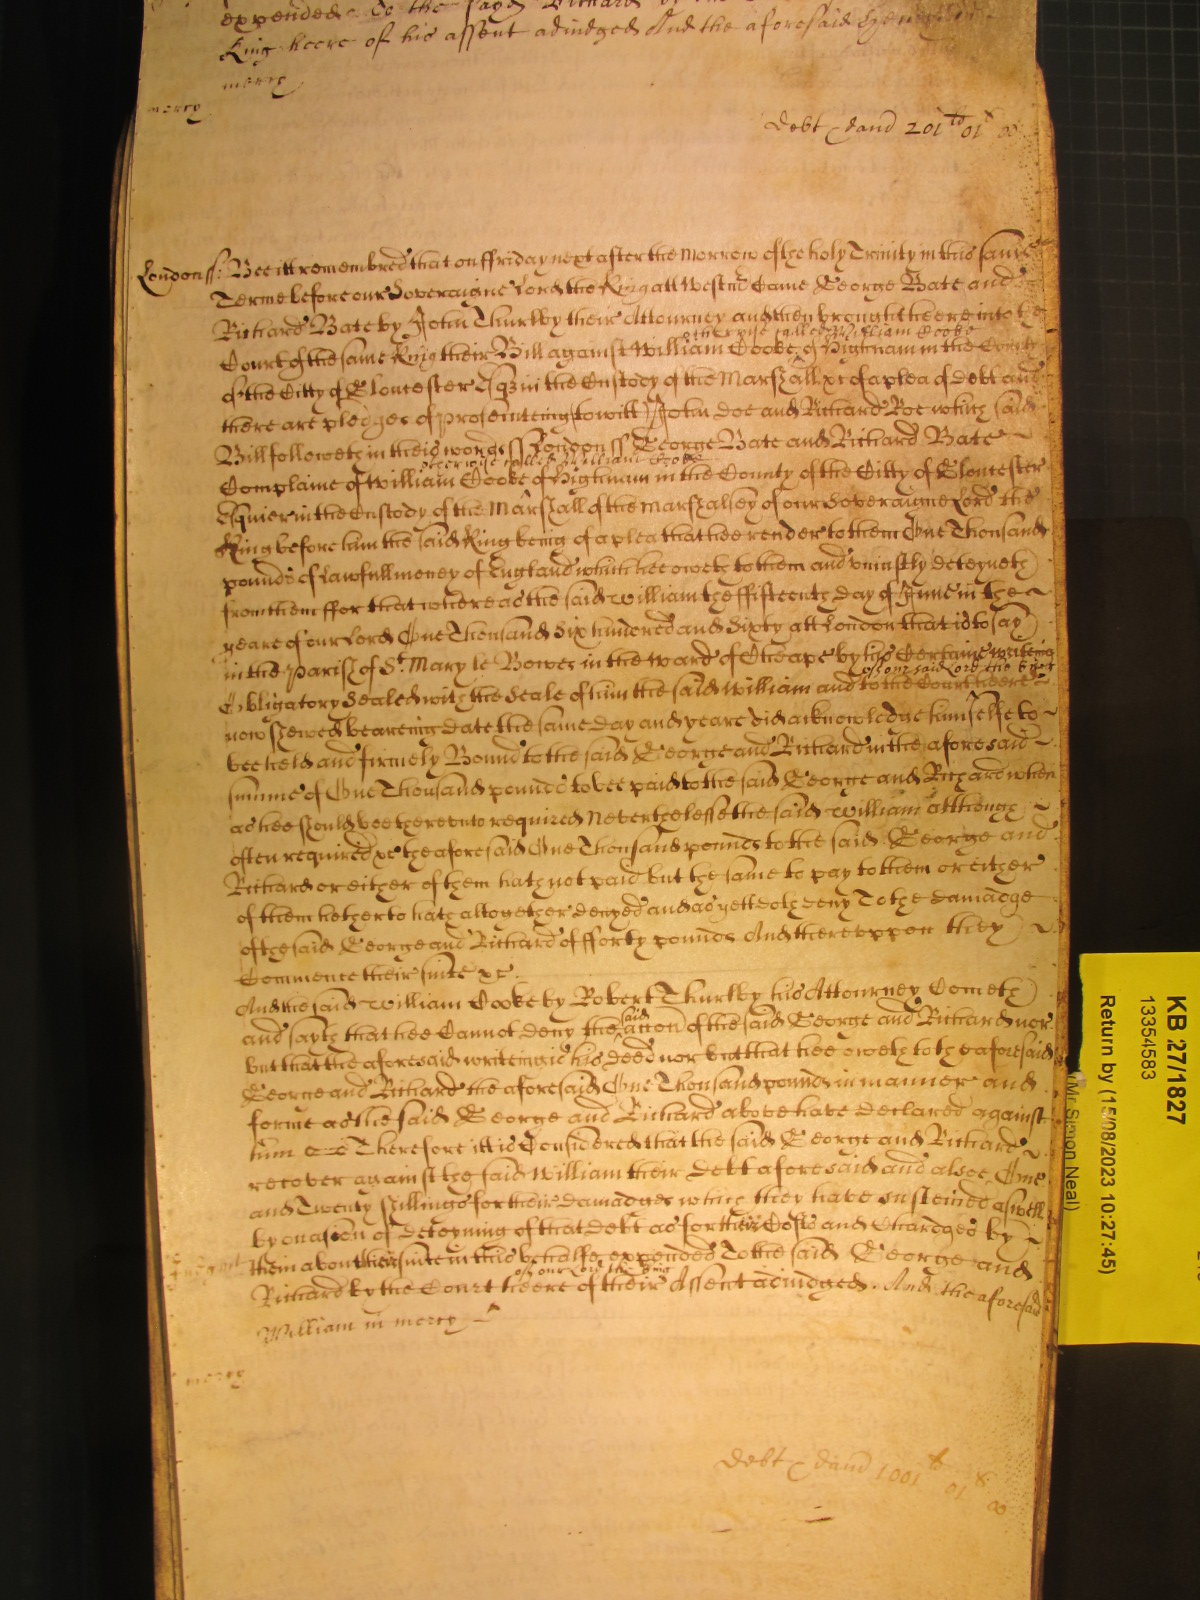 expended To the sayd Richard
King heere of his assent adiudged And the aforesaid Henry in
mercy
mercy
Debt & dam 201 lb 01 s 00
London ss: Bee itt remembred that on ffriday next after the Morrow of the holy Trinity in this same
Terme before our Soveraigne Lord the King att Westm Came George Bate and
Richard Bate by John Thurlby their Attourney and they brought heere into the
otherwise called William Cooke
Court of the same King their Bill against William Cooke of Highnam in the County
of the Citty of Gloucester Esqr in the Custody of the Marshall xc of a plea of Debt and
there are pledges of prosecuteing (to witt) John Doe and Richard Roe which said
Bill followeth in theis words ss London ss George Bate and Richard Bate
otherwise called William Cooke
Complaine of William Cooke of Highnam in the County of the Citty of Gloucester
Esquier in the Custody of the Marshall of the Marshalsey of our Soveraigne Lord the
King before him the said King being of a plea that hee render to them One Thousand
pounds of Lawfull money of England which hee oweth to them and uniustly deteyneth
from them ffor that whereas the said William the ffifteenth day of June in the
yeare of our Lord One Thousand Six hundred and Sixty att London that is to say
in the Parish of St. Mary le Bowe in the Ward of Cheape by his Certaine writeing
of our said Lord the King
Obligatory Sealed with the Seale of him the said William and to the Court heere
now shewed beareing date the same day and yeare did acknowledge himselfe to
bee held and firmely Bound to the said George and Richard in the aforesaid
summe of One Thousand pounds to bee paid to the said George and Richard when
as hee should bee thereunto required Neverthelesse the said William allthough
often required xc the aforesaid One Thousand pounds to the said George and
Richard or either of them hath not paid but the same to pay to them or either
of them hetherto hath altogether denyed and as yett doth deny To the damadge
of the said George and Richard of fforty pounds And thereuppon they
Commence their suite xc
And the said William Cooke by Robert Thurlby his Attourney Cometh
said
and sayth that hee Cannot deny the action of the said George and Richard nor
but that the aforesaid writeing is his deed nor but that hee oweth to the aforesaid
George and Richard the aforesaid One Thousand pounds in manner and
forme as the said George and Richard above have declared against
him Therefore itt is Considered that the said George and Richard
recover against the said William their Debt aforesaid and alsoe One
and Twenty shillings for their damadges which they have susteined aswell
by occasion of deteyning of that Debt as for their Costs and Chardges by
them about their suite in this behalfe expended To the said George and
of our Lord the King
Richard by the Court heere of their Assent adiudged. And the aforesaid
William in mercy
mercy
Debt & dam 1001 lb 01 s 00
KB 27/1827
13354583
Return by (15/08/2023 10:27:45)
(Mr Simon Neal)